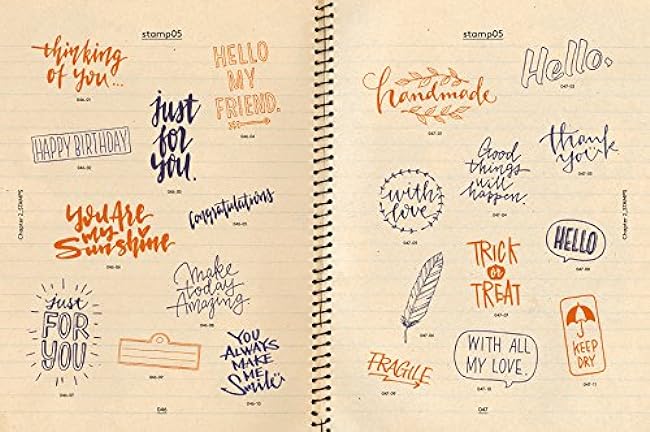 stamp05
thinking
of you...
046-01
HELLO
MY
FRIEND.
046-04
just
for
you.
046-03
HAPPY BIRTHDAY
046-02
Congratulations
046-05
You Are
my
Sunshine
046-06
Make
today
Amazing
046-08
Just
FOR
YOU
046-07
046-09
YOU
ALWAYS
MAKE
ME
Smile
046-10
Chapter 2_STAMPS
046
stamp05
handmade
047-01
Hello.
047-02
thank
you
047-03
Good
things
will
happen.
047-04
with
love
047-05
HELLO
047-08
TRICK
or
TREAT
047-07
047-06
FRAGILE
047-09
WITH ALL
MY LOVE.
047-10
KEEP
DRY
047-11
Chapter 2_STAMPS
047